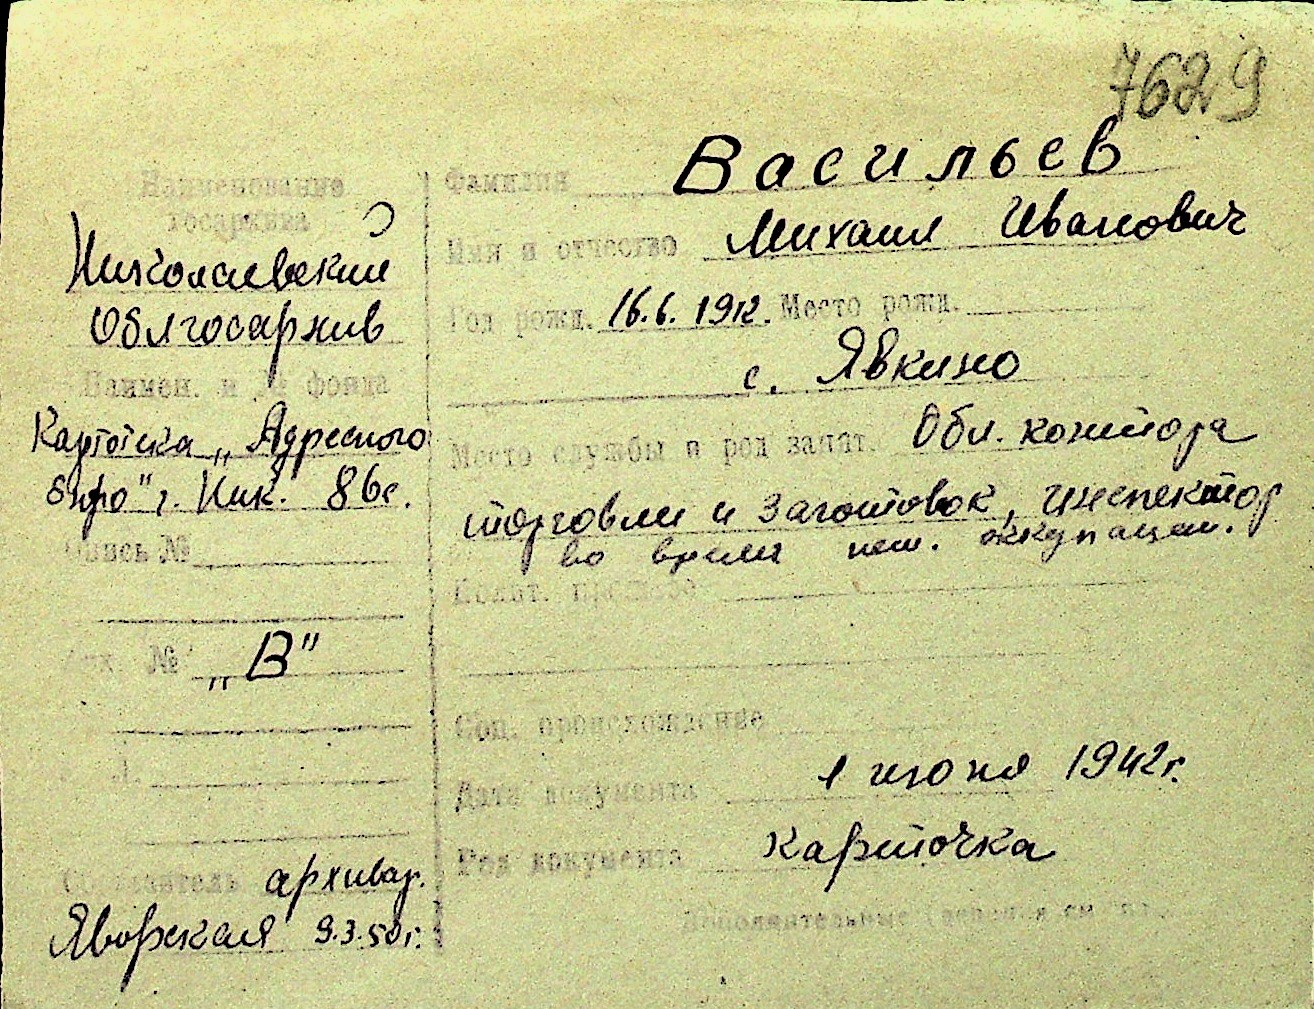 7629
Наименование
госархива
Николаевский
Облгосархив
Наимен. и № фонда
Картотека „Адресного
бюро" г. Ник. 86с.
Опись №
Арх. № „В"
Л.
Составитель архивар.
Яворская 9.3.50г.
Фамилия Васильев
Имя и отчество Михаил Иванович
Год рожд. 16.6.1912. Место рожд.
с. Явкино
Место службы и род занят. Обл. контора
торговли и заготовок, инспектор
во время нем. оккупации.
Соц. происхождение
Дата документа 1 июня 1942г.
Род документа карточка
Дополнительные сведения см